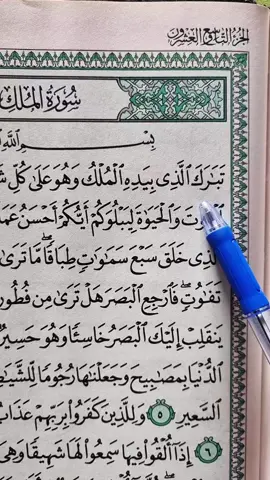 الجزء التاسع والعشرون
سورة الملك
بسم الله
تَبَٰرَكَ ٱلَّذِى بِيَدِهِ ٱلْمُلْكُ وَهُوَ عَلَىٰ كُلِّ
وَٱلْحَيَوٰةَ لِيَبْلُوَكُمْ أَيُّكُمْ أَحْسَنُ
خَلَقَ سَبْعَ سَمَٰوَٰتٍ طِبَاقًا ۖ مَّا تَرَىٰ
تَفَٰوُتٍ ۖ فَٱرْجِعِ ٱلْبَصَرَ هَلْ تَرَىٰ مِن فُطُورٍ
يَنقَلِبْ إِلَيْكَ ٱلْبَصَرُ خَاسِئًا وَهُوَ حَسِيرٌ
ٱلدُّنْيَا بِمَصَٰبِيحَ وَجَعَلْنَٰهَا رُجُومًا
ٱلسَّعِيرِ ٥ وَلِلَّذِينَ كَفَرُوا۟ بِرَبِّهِمْ عَذَابُ
٦ إِذَآ أُلْقُوا۟ فِيهَا سَمِعُوا۟ لَهَا شَهِيقًا وَهِىَ